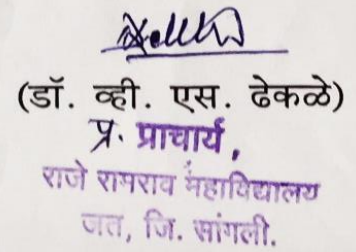 (डॉ. व्ही. एस. ढेकळे)
प्र. प्राचार्य,
राजे रामराव महाविद्यालय
जत, जि. सांगली.